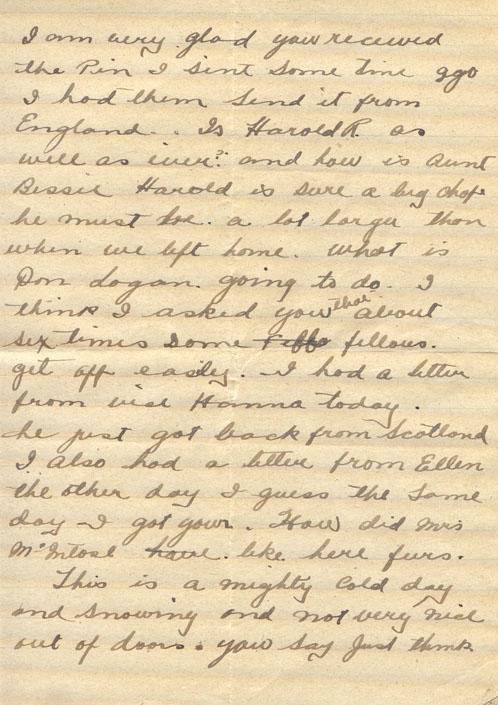 I am very glad you received
the Pin I sent some time ago
I had them send it from
England. Is Harold R. as
well as ever? and how is Aunt
Bessie Harold is sure a big chap
he must be. a lot larger than
when we left home. What is
Don Logan. going to do. I
think I asked you that about
six times some fellows.
get off easily. I had a letter
from Hanna today.
he just got back from Scotland
I also had a letter from Ellen
the other day I guess the same
day I got your. How did Mrs
McIntosh have like here furs.
This is a mighty cold day
and snowing and not very nice
out of doors. you say Just think